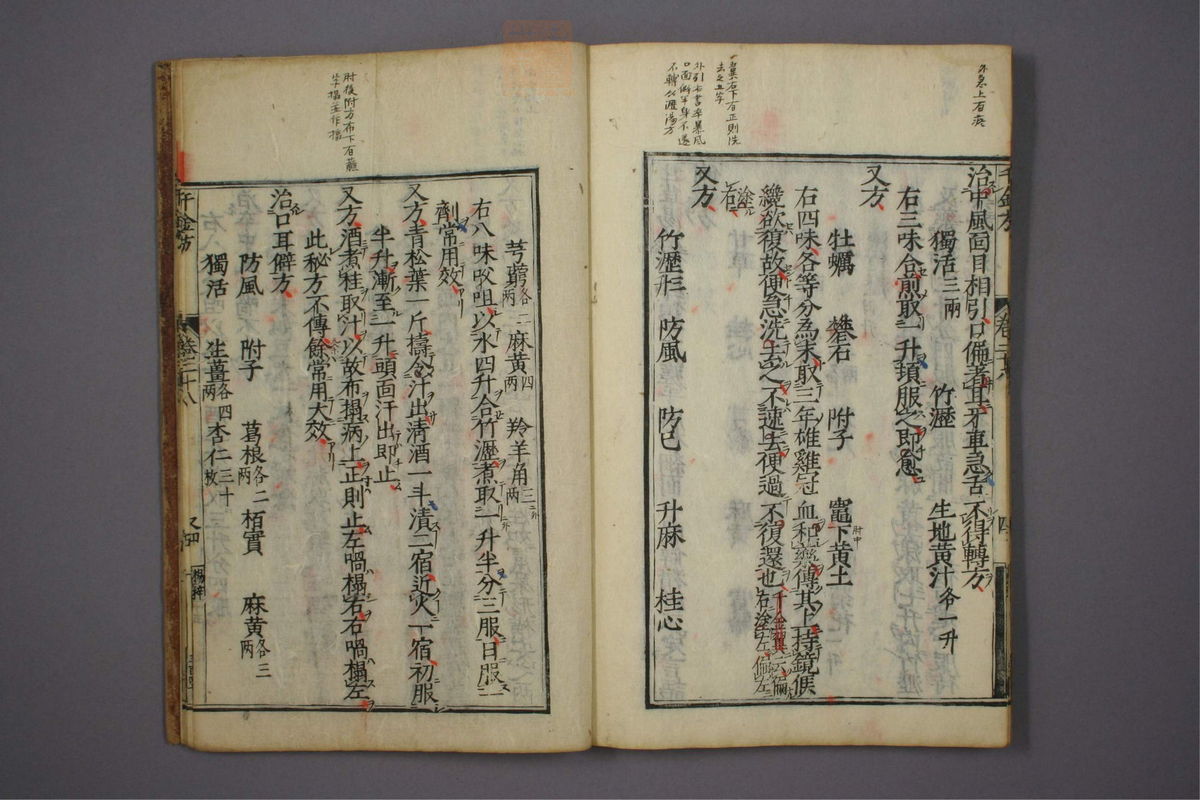 治中風面目相引口偏著耳牙車急舌不得轉方
獨活三兩 竹瀝 生地黃汁各一升
右三味合煎取一升頓服之即愈
又方
牡蠣 礬石 附子 竈下黃土
右四味各等分為末取三年雄雞冠血和藥傅其上持鏡候
纔欲復故便急洗去之不速去便過不復還也千金翼云偏右塗左偏左
塗右
又方
竹瀝 防風 防己 升麻 桂心
芎藭各二兩 麻黃四兩 羚羊角三兩
右八味㕮咀以水四升合竹瀝煮取一升半分三服日服一
劑常用效
又方青松葉一斤擣令汁出清酒一斗漬二宿近火一宿初服
半升漸至一升頭面汗出即止
又方酒煮桂取汁以故布搨病上正則止左喎搨右右喎搨左
此秘方不傳餘常用大效
治口耳僻方
防風 附子 葛根各二兩 栢實 麻黃各三兩
獨活 生薑各四兩 杏仁三十枚
千金方 卷二十八 又四